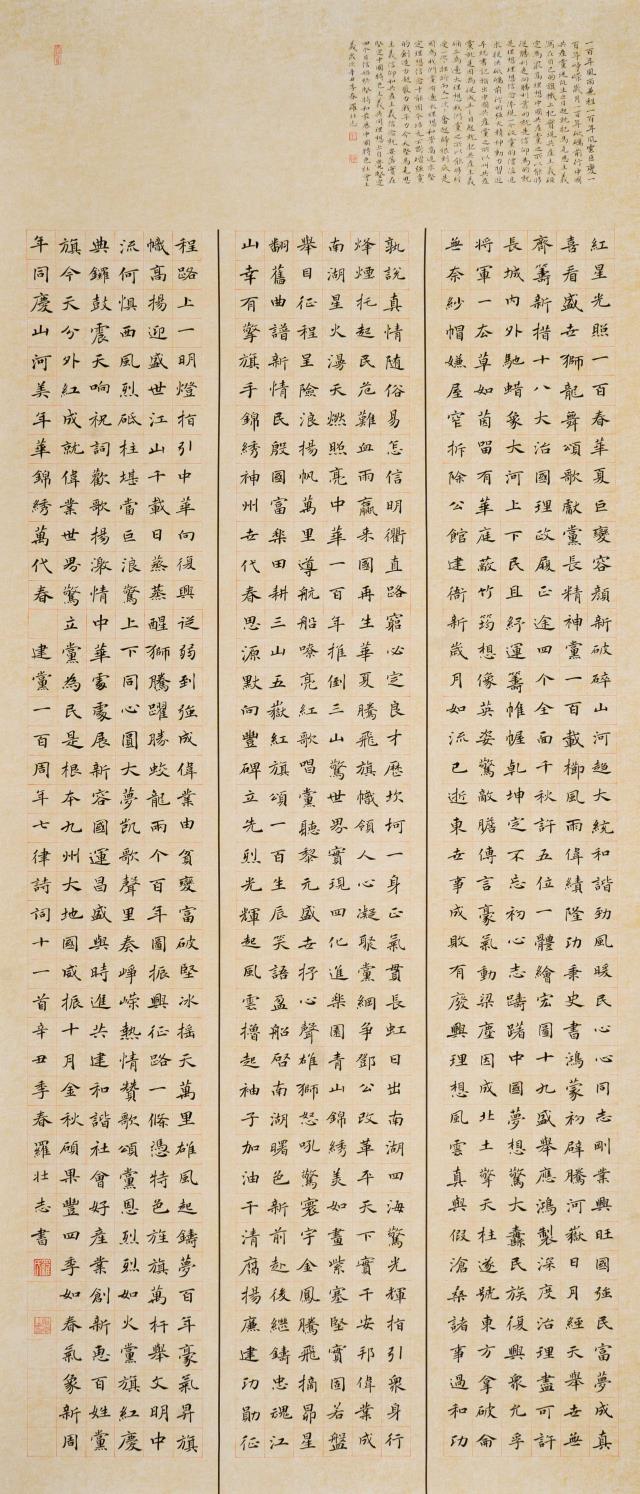 一百年風雨兼程一百年風雲巨變一
百年崢嶸歲月一百年砥礪前行中國
共産黨從成立之日起就把馬克思主義
寫在自己的旗幟上把實現共産主義確
定為最高理想中國共産黨之所以能够
義歲次辛丑季春羅壯志
紅星光照一百春華夏巨變容顏新破碎山河超大統和諧勁風暖民心心同志剛業興旺國強民富夢成真
喜看盛世獅龍舞頌歌獻黨長精神黨一百載櫛風雨偉績隆功秉史書鴻蒙初辟騰河嶽日月經天舉世無
齊籌新揩十八大治國理政履正途四个全面千秋許五位一體繪宏圖十九盛舉應鴻製深度治理盡可許
長城内外馳蜡象大河上下民且紓運籌帷幄乾坤定不忘初心志躊躇中國夢想驚大纛民族復興衆允孚
將軍一去草如茵留有華庭蔽竹筠想像英姿驚敵膽傳言豪氣動梁塵因成北土擎天柱遂號東方拿破侖
無奈紗帽嫌屋窄拆除公館建衙新歲月如流已逝東世事成敗有廢興理想風雲真與假滄桑諸事過和功
孰說真情隨俗易怎信明衢直路窮必定良才歷坎坷一身正氣貫長虹日出南湖四海驚光輝指引衆身行
烽煙托起民危難血雨贏来國再生華夏騰飛旗幟領人心凝聚黨綱爭鄧公改革平天下實干安邦偉業成
南湖星火湯天燃照亮中華一百年推倒三山驚世界實現四化進樂園青山錦綉美如畫紫塞堅實固若盤
舉目征程呈險浪揚帆萬里導航船嘹亮紅歌唱黨聽黎元盛世抒心聲雄獅怒吼驚寰宇金鳳騰飛摘昴星
翻舊曲譜新情民殷國富樂田耕三山五嶽紅旗頌一百生辰笑語盈船啓南湖曙色新前赴後繼鑄忠魂江
山幸有擎旗手錦綉神州世代春思源默向豐碑立先烈光輝起風雲擼起袖子加油干清腐揚廉建功勛征
程路上一明燈指引中華向復興從弱到強成偉業由貧變富破堅冰搖天萬里雄風起鑄夢百年豪氣昇旗
幟高揚迎盛世江山千載日蒸蒸醒獅騰躍勝蛟龍兩个百年圖振興征路一條憑特色旌旗萬杆舉文明中
流何懼西風烈砥柱堪當巨浪驚上下同心圓大夢凱歌聲里奏崢嶸熱情贊歌頌黨恩烈烈如火黨旗紅慶
典鑼鼓震天响祝詞歡歌揚激情中華處處展新容國運昌盛與時進共建和諧社會好産業創新惠百姓黨
旗今天分外紅成就偉業世界驚立黨為民是根本九州大地國威振十月金秋碩果豐四季如春氣象新周
年同慶山河美年華錦綉萬代春 建黨一百周年七律詩詞十一首辛丑季春羅壯志書